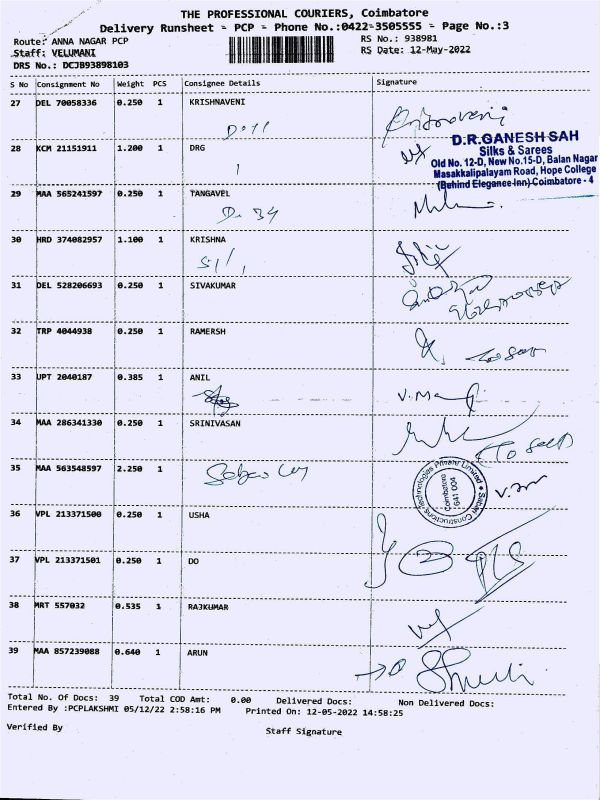 THE PROFESSIONAL COURIERS, Coimbatore
Delivery Runsheet - PCP - Phone No.:0422-3505555 - Page No.:3
Route: ANNA NAGAR PCP
RS No.: 938981
Staff: VELUMANI
RS Date: 12-May-2022
DRS No.: DCJB93898103
S No Consignment No Weight PCS Consignee Details Signature
27 DEL 70058336 0.250 1 KRISHNAVENI
D.R.GANESH SAH
Silks & Sarees
Old No. 12-D, New No.15-D, Balan Nagar
Masakkalipalayam Road, Hope College
(Behind Elegance Inn) Coimbatore - 4
28 KCM 21151911 1.200 1 DRG
29 MAA 565241597 0.250 1 TANGAVEL
30 HRD 374082957 1.100 1 KRISHNA
31 DEL 528206693 0.250 1 SIVAKUMAR
32 TRP 4044938 0.250 1 RAMERSH
33 UPT 2040187 0.385 1 ANIL
34 MAA 286341330 0.250 1 SRINIVASAN
35 MAA 563548597 2.250 1
Coimbatore
641 004
36 VPL 213371500 0.250 1 USHA
37 VPL 213371501 0.250 1 DO
38 MRT 557032 0.535 1 RAJKUMAR
39 MAA 857239088 0.640 1 ARUN
Total No. Of Docs: 39 Total COD Amt: 0.00 Delivered Docs: Non Delivered Docs:
Entered By :PCPLAKSHMI 05/12/22 2:58:16 PM Printed On: 12-05-2022 14:58:25
Verified By
Staff Signature